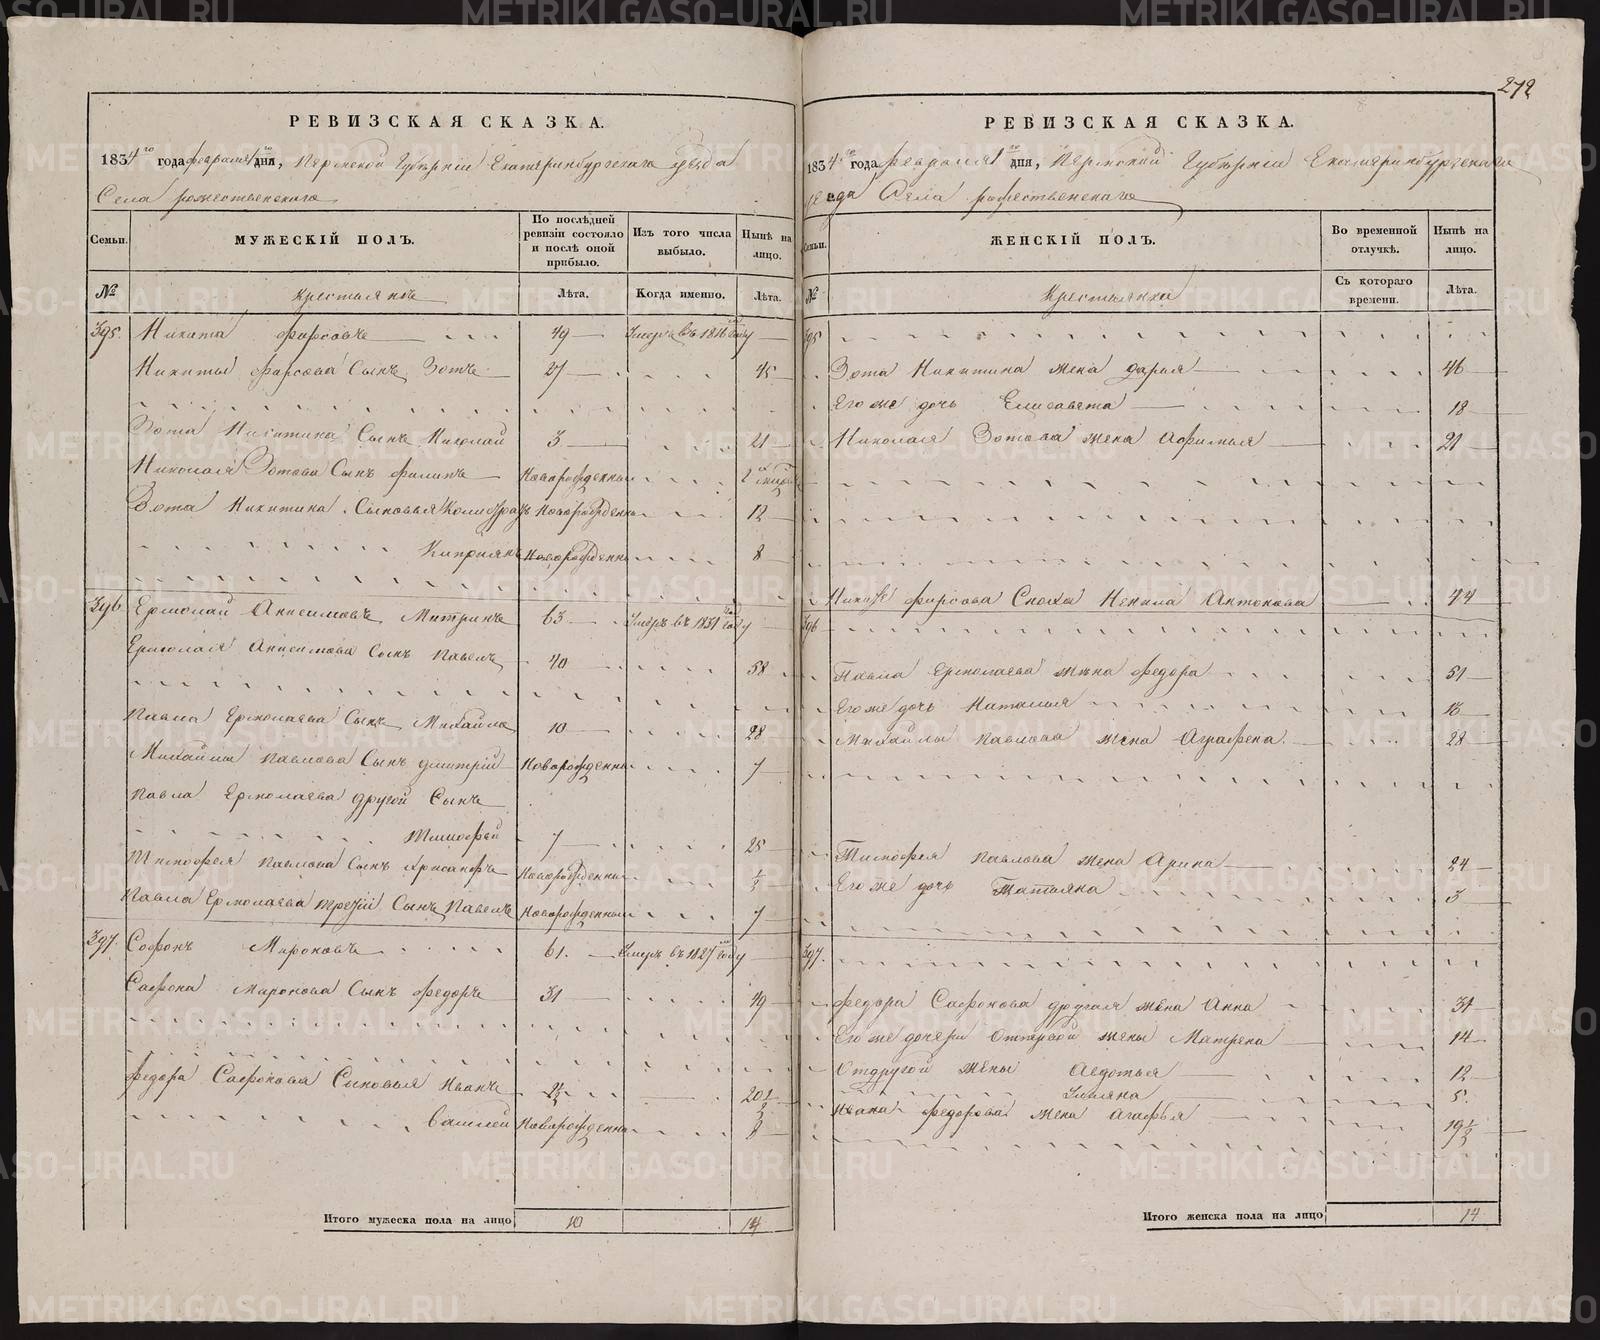 272
РЕВИЗСКАЯ СКАЗКА.
1834го года февраля 1го дня, Пермской Губерніи Екатеринбургскаго уезда
Села рожественскаго
Семьи.
МУЖЕСКІЙ ПОЛЪ.
По послѣдней ревизіи состояло и послѣ оной прибыло.
Изъ того числа выбыло.
Нынѣ на лицо.
№
Крестьянъ
Лѣта.
Когда именно.
Лѣта.
395. Никита фирсовъ 49 Умеръ въ 1816 году
Никиты фирсова Сынъ Зотъ 27 45
Зота Никитина Сынъ Николай 3 21
Николая Зотова Сынъ филипъ Новорожденный
Зота Никитина Сыновья Новорожденны 12
Киприянъ Новорожденны 8
396 Ермолай Анисимовъ Митринъ 63 Умеръ въ 1831 году
Ермолая Анисимова Сынъ Павелъ 40 58
Павла Ермолаева Сынъ Михайло 10 28
Михайлы Павлова Сынъ дмитрій Новорожденны 7
Павла Ермолаева другой Сынъ
Тимофей 7 25
Тимофея Павлова Сынъ Хрисанфъ Новорожденны 1/2
Павла Ермолаева третій Сынъ Павелъ Новорожденный 7
397. Софонъ Мироновъ 61. Умеръ въ 1827 году
Софона Миронова Сынъ федоръ 31 49
федора Софонова Сыновья Иванъ 2 1/2 20 1/2
Василей Новорожденны 8
Итого мужеска пола на лицо 10 14
РЕВИЗСКАЯ СКАЗКА.
1834го года февраля 1го дня, Пермской Губерніи Екатеринбургскаго
уезда Села рожественскаго
Семьи.
ЖЕНСКІЙ ПОЛЪ.
Во временной отлучкѣ.
Нынѣ на лицо.
№
Крестьянки
Съ котораго времени.
Лѣта.
395
Зота Никитина жена дарья 46
Его же дочь Елисавета 18
Николая Зотова жена Афимья 21
фирсова Сноха Ненила Антонова 44
396
Павла Ермолаева жена федора 51
Его же дочь Наталья 18
Михайлы Павлова жена Аграфена 28
Тимофея Павлова жена Арина 24
Его же дочь Татьяна 3
397.
федора Софонова другая жена Анна 31
Его же дочери Отпервой жены Матрена 14
Отдругой жены Авдотья 12
Ульяна 5.
Ивана федорова жена Агафья 19 1/2
Итого женска пола на лицо 14
METRIKI.GASO-URAL.RU